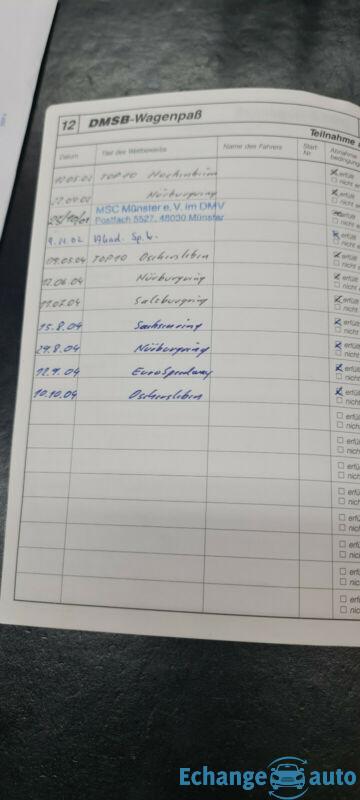 12 DMSB-Wagenpaß
Teilnahme
Datum Titel des Wettbewerbs Name des Fahrers Start- Nr. Abnahme bedingung
12.05.02 TOP10 Hockenheim erfüllt
nicht
Nürburgring erfüllt
nicht
MSC Münster e. V. im DMV
Postfach 5527, 48030 Münster erfüllt
nicht
9.11.02 erfüllt
nicht
09.05.04 TOP10 Oschersleben erfüllt
nicht
12.06.04 Nürburgring erfüllt
nicht
11.07.04 Salzburgring erfüllt
nicht
15.8.04 Sachsenring erfüllt
nicht
29.8.04 Nürburgring erfüllt
nicht
12.9.04 EuroSpeedway erfüllt
nicht
10.10.04 Oschersleben erfüllt
nicht
erfü
nich
erfü
nich
erfü
nich
erfü
nich
erfü
nich
erfü
nich
erfü
nich
erfü
nich
Echange auto